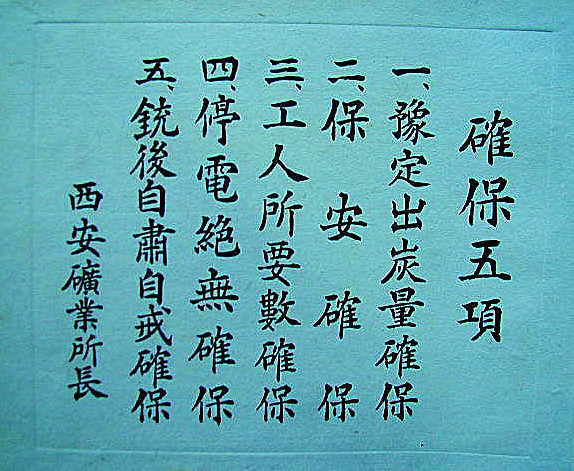 確保五項
一、豫定出炭量確保
二、保安確保
三、工人所要數確保
四、停電絕無確保
五、銃後自肅自戒確保
西安礦業所長